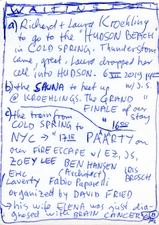 WAITING
a) Richard + Laura Kroehling
to go to the "HUDSON BEACH"
in COLD SPRING. Thunderstorm
came, great, Laura dropped her
cell into HUDSON. 6 VII 2019
b) the SAUNA to heat up w/ J.S.
@ KROEHLINGS. The GRAND
FINALE of our stay
c) the train from 1600
COLD SPRING to
NYC → 1715 PÄÄRTY on
our FIRE ESCAPE w/ EZ, JS,
ZOEY LEE BEN HANSEN
(Architect) IRIS BROSCH
Eric
Laverty Fabio Pappelli
organized by DAVID FRIED
→ his wife ELENA was just dia-
gnosed with BRAIN CANCER